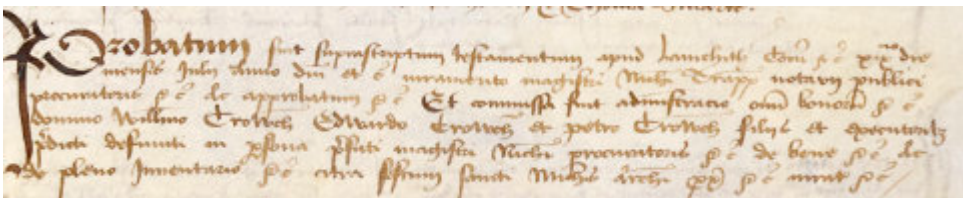 Probatum fuit suprascriptum testamentum apud Lamehith Corā &c̄ xxmo die
mensis Julii Anno dn̄i &c̄ Juramento magistri Nichi Trapp notarii publici
procuratoris &c̄ Ac approbatum &c̄ Et commissa fuit administracio om̄i bonorū &c̄
domino Willm̄o Crowch Edwardo Crowch et petro Crowch filiis et executoribȝ
p̄dicti defuncti in p̄sona p̄fati magistri Nichi procuratoris &c̄ de bene &c̄ Ac
de pleno Inventario &c̄ citra festum sancti Michis Archi px̄ &c̄ Jurat &c̄